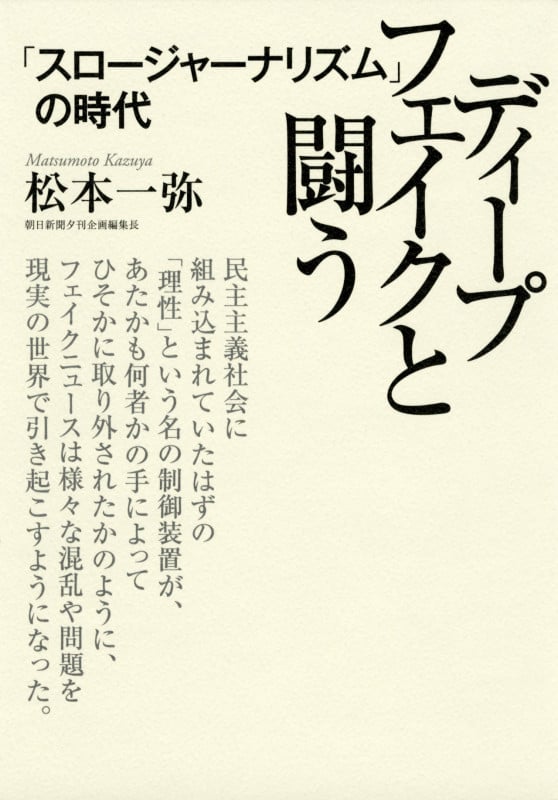 ディープ
フェイクと
闘う
「スロージャーナリズム」
の時代
Matsumoto Kazuya
松本一弥
朝日新聞夕刊企画編集長
民主主義社会に
組み込まれていたはずの
「理性」という名の制御装置が、
あたかも何者かの手によって
ひそかに取り外されたかのように、
フェイクニュースは様々な混乱や問題を
現実の世界で引き起こすようになった。